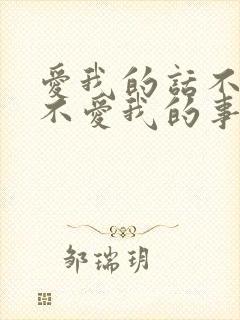 愛我的話不
不愛我的事
邹瑞玥